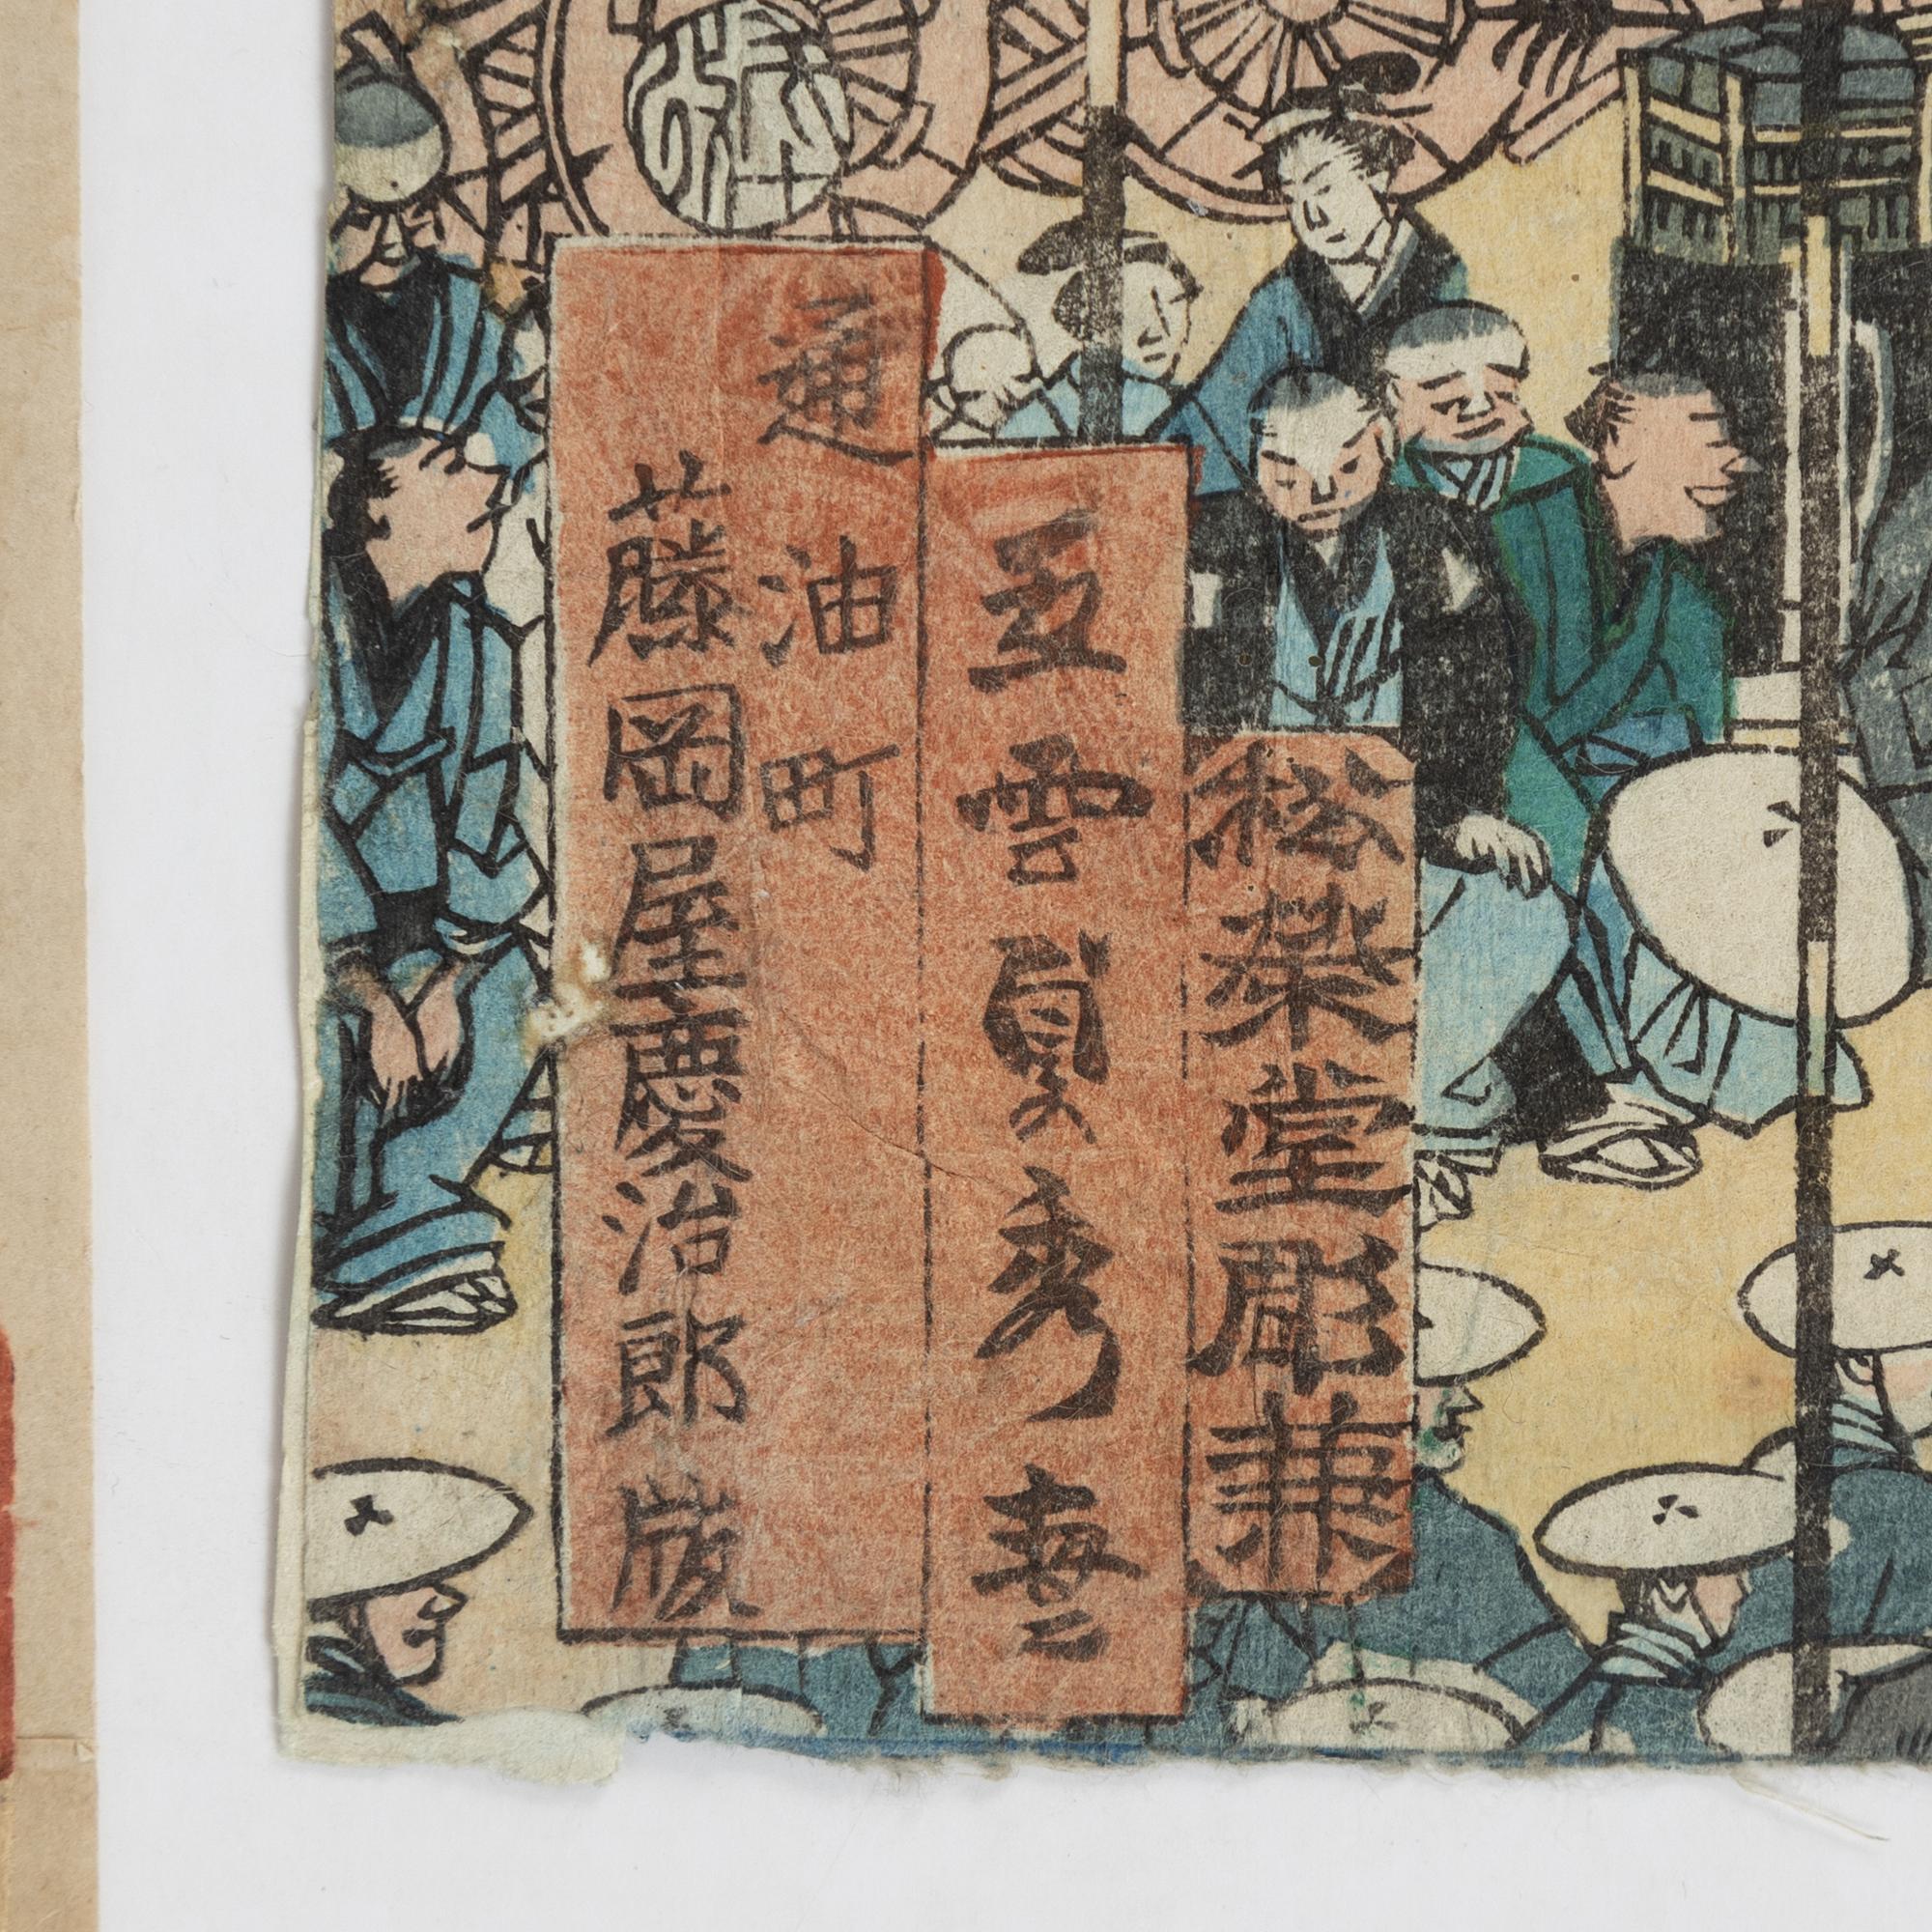 松榮堂彫兼
五雲貞秀畫
通油町
藤岡屋慶治郎版